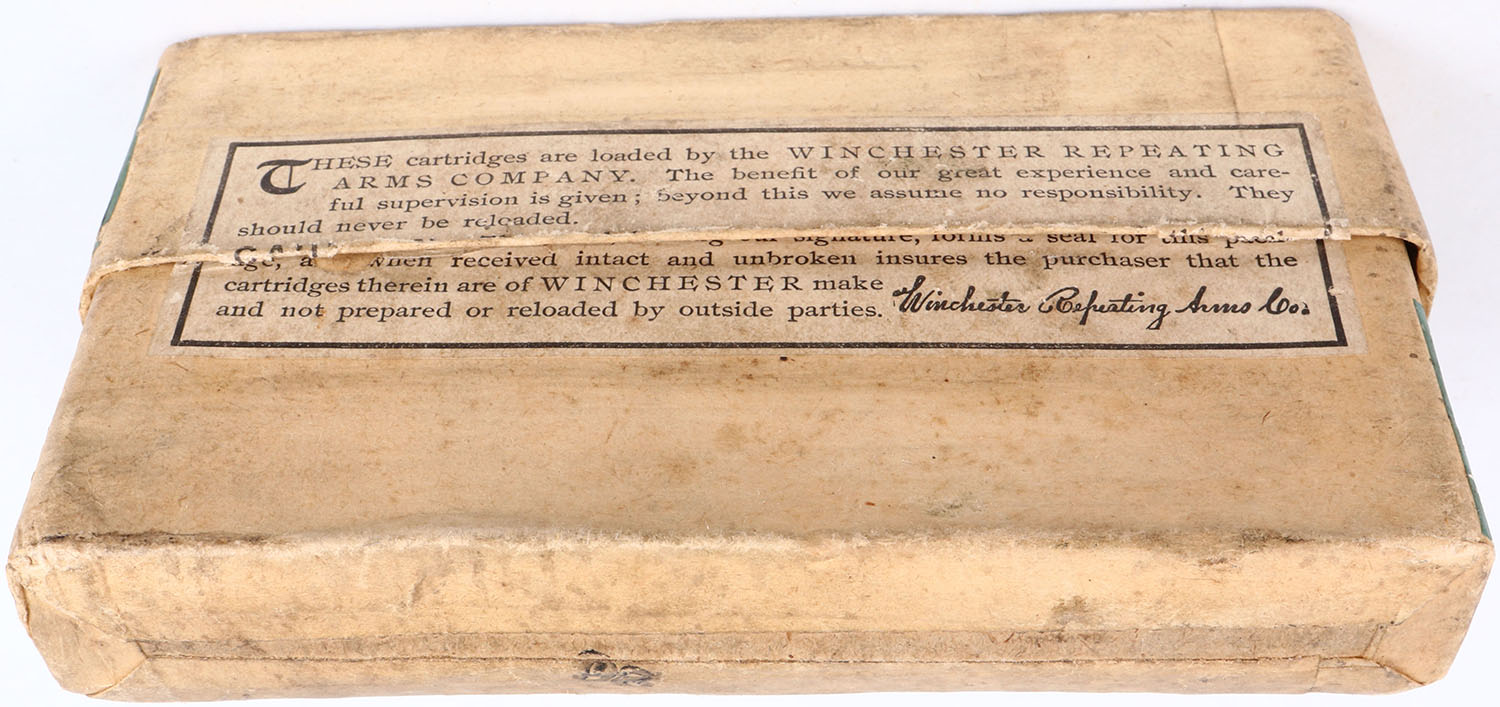 THESE cartridges are loaded by the WINCHESTER REPEATING
ARMS COMPANY. The benefit of our great experience and care-
ful supervision is given; beyond this we assume no responsibility. They
should never be reloaded.
our signature, forms a seal for this
when received intact and unbroken insures the purchaser that the
cartridges therein are of WINCHESTER make
and not prepared or reloaded by outside parties. Winchester Repeating Arms Co.